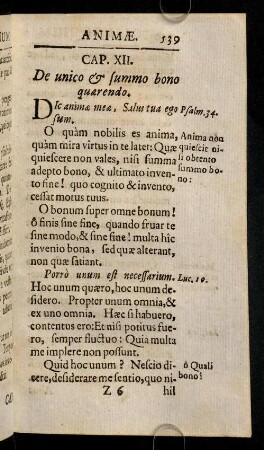 ANIMÆ. 539
CAP. XII.
De unico & summo bono
quærendo.
DIc animæ meæ, Salus tua ego Psalm. 34.
sum.
O quàm nobilis es anima, Anima non
quàm mira virtus in te latet: Quæ quiescit ni-
quiescere non vales, nisi summa si obtento
adepto bono, & ultimato inven- summo bo-
to fine! quo cognito & invento, no:
cessat motus tuus.
O bonum super omne bonum!
ô finis sine fine, quando fruar te
sine modo, & sine fine! multa hîc
invenio bona, sed quæ alterant,
non quæ satiant.
Porrò unum est necessarium. Luc. 10.
Hoc unum quæro, hoc unum de-
sidero. Propter unum omnia, &
ex uno omnia. Hæc si habuero,
contentus ero: Et nisi potitus fue-
ro, semper fluctuo: Quia multa
me implere non possunt.
Quid hoc unum? Nescio di- ô Quali
cere, desiderare me sentio, quo ni- bono!
Z 6 hil